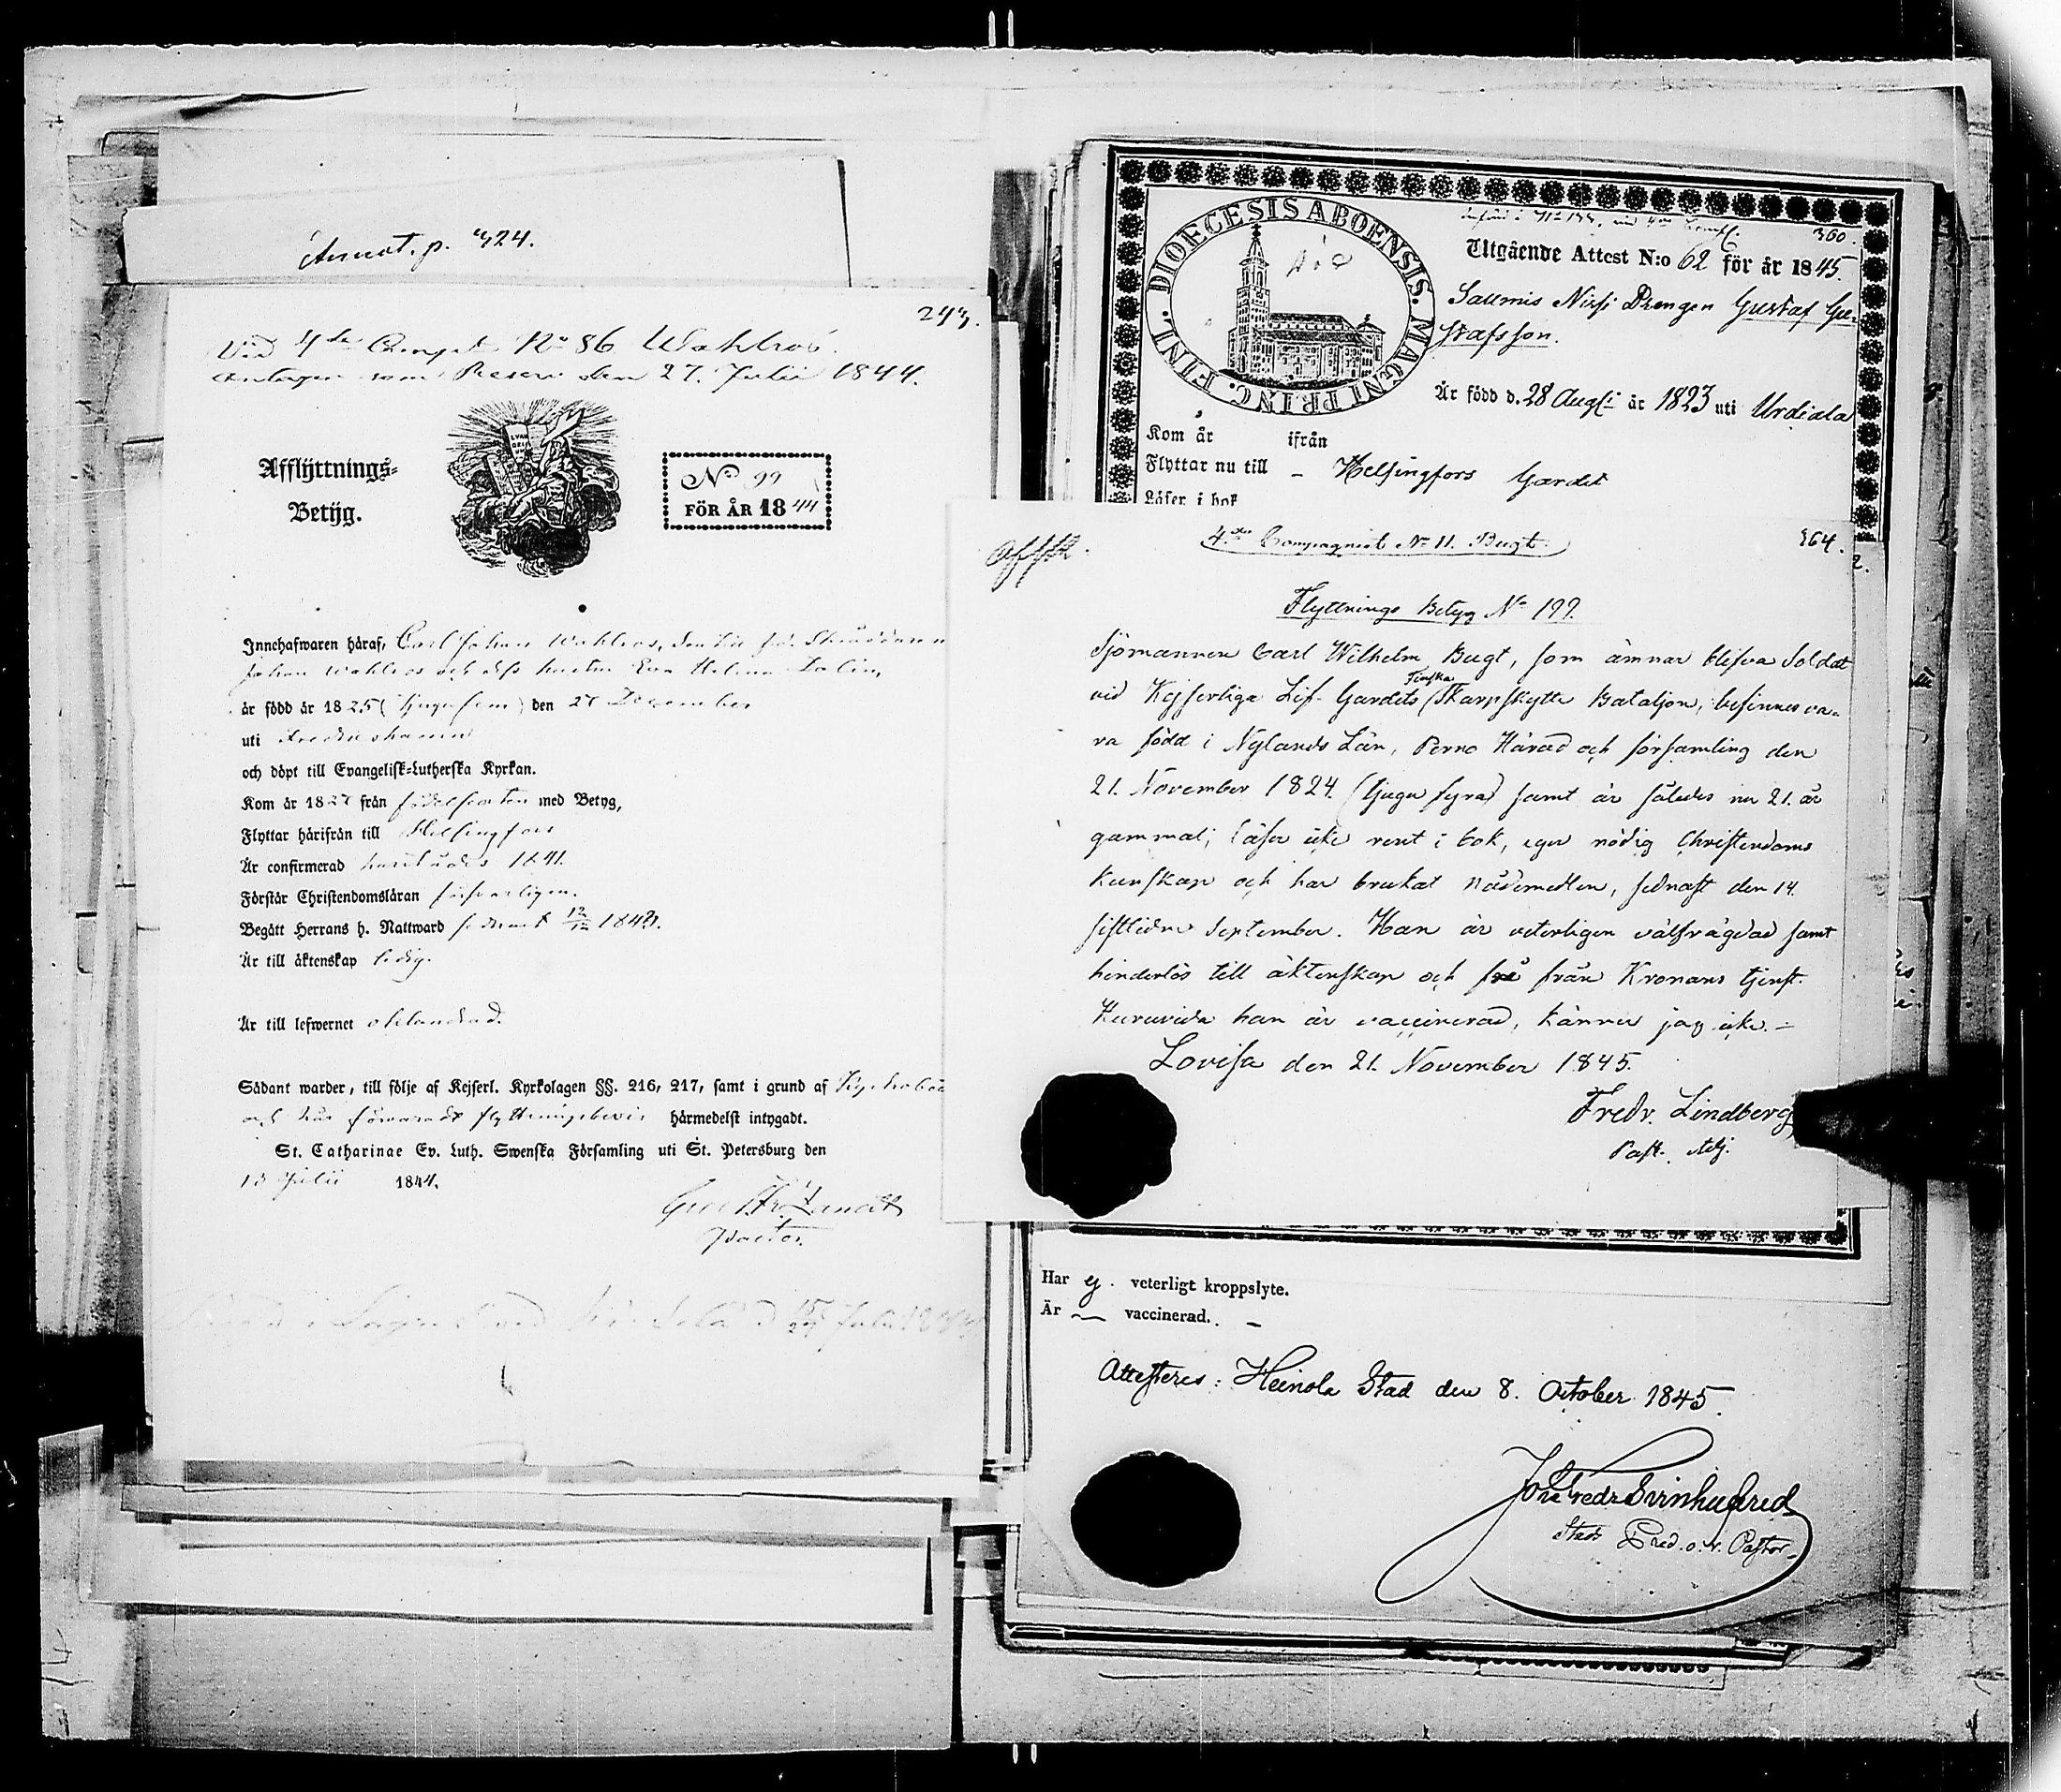 Annot. p. 324.
243.
Vid 4de Compt. No 86 Wahlroos.
Antagen som Reserv den 27. Julii 1844.
Afflyttnings-
Betyg.
No 99
FÖR ÅR 1844
Innehafwaren häraf, Carl Johan Wahlroos, Son till
Johan Wahlroos och dess hustru Eva Helena Dalin,
är född år 1825 (tjugufem) den 27 December
uti Fredrikshamn
och döpt till Evangelisk-Lutherska Kyrkan.
Kom år 1827 från födelseorten med Betyg,
Flyttar härifrån till Helsingfors
Är confirmerad härstädes 1841.
Förstår Christendomsläran försvarligen.
Begått Herrans h. Nattward sednast 12/12 1843.
Är till äktenskap ledig.
Är till lefwernet oklandrad.
Sådant warder, till följe af Kejserl. Kyrkolagen §§. 216, 217, samt i grund af Kyrkobok
och här förvaradt flyttningsbevis härmedelst intygadt.
St. Catharinae Ev. Luth. Swenska Församling uti St. Petersburg den
13 Julii 1844.
Pastor.
DIOECESIS ABOENSIS. MAGNI PRINC. FINL.
360.
Utgående Attest N:o 62 för år 1845.
Saumis Nissi Drengen Gustaf Gu-
stafsson.
Är född d. 28 Augusti år 1823 uti Urdiala
Kom år ifrån
Flyttar nu till – Helsingfors Gardet
Läser i bok
364.
4de Compagniet No 11. Bugt.
Flyttnings Betyg No 199.
Sjömannen Carl Wilhelm Bugt, som ämnar blifva Soldat
vid Kejserliga Lif-Gardets Finska Skarpskytte Bataljon, befinnes va-
ra född i Nylands Län, Perno Härad och församling den
21. November 1824. (tjugu fyra) samt är således nu 21. år
gammal; läser icke rent i bok, eger nödig Christendoms
kunskap och har brukat nådemedlen, sednast den 14.
sistlidne September. Han är veterligen välfrägdad samt
hinderlös till äktenskap och fri från Kronans tjenst.
Huruvida han är vaccinerad, känner jag icke. –
Lovisa den 21. November 1845.
Fredr. Lindberg
Past. Adj.
Har ej veterligt kroppslyte.
Är — vaccinerad. –
Attesteras: Heinola Stad den 8. October 1845.
Joh. Fredr. Svinhufvud
Stads Pred. o. V. Pastor